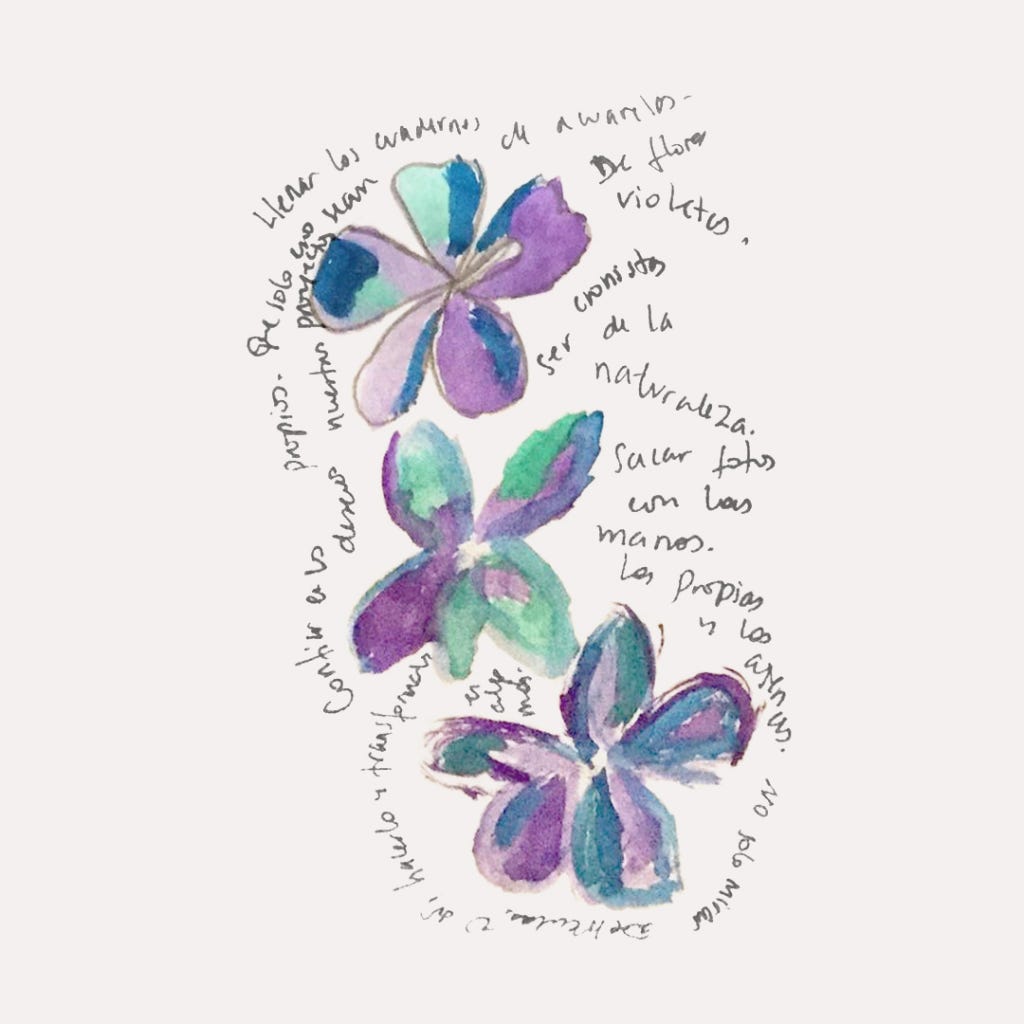 Llenar los cuadernos de acuarelas.
De flores
violetas.
ser cronistas
de la
naturaleza.
Sacar fotos
con las
manos.
Las propias
y las
ajenas.
No solo mirar
sí, hacerlo y transformarlo
en algo
más.
Confiar en los deseos propios. Que solo eso
nuestros proyectos sean